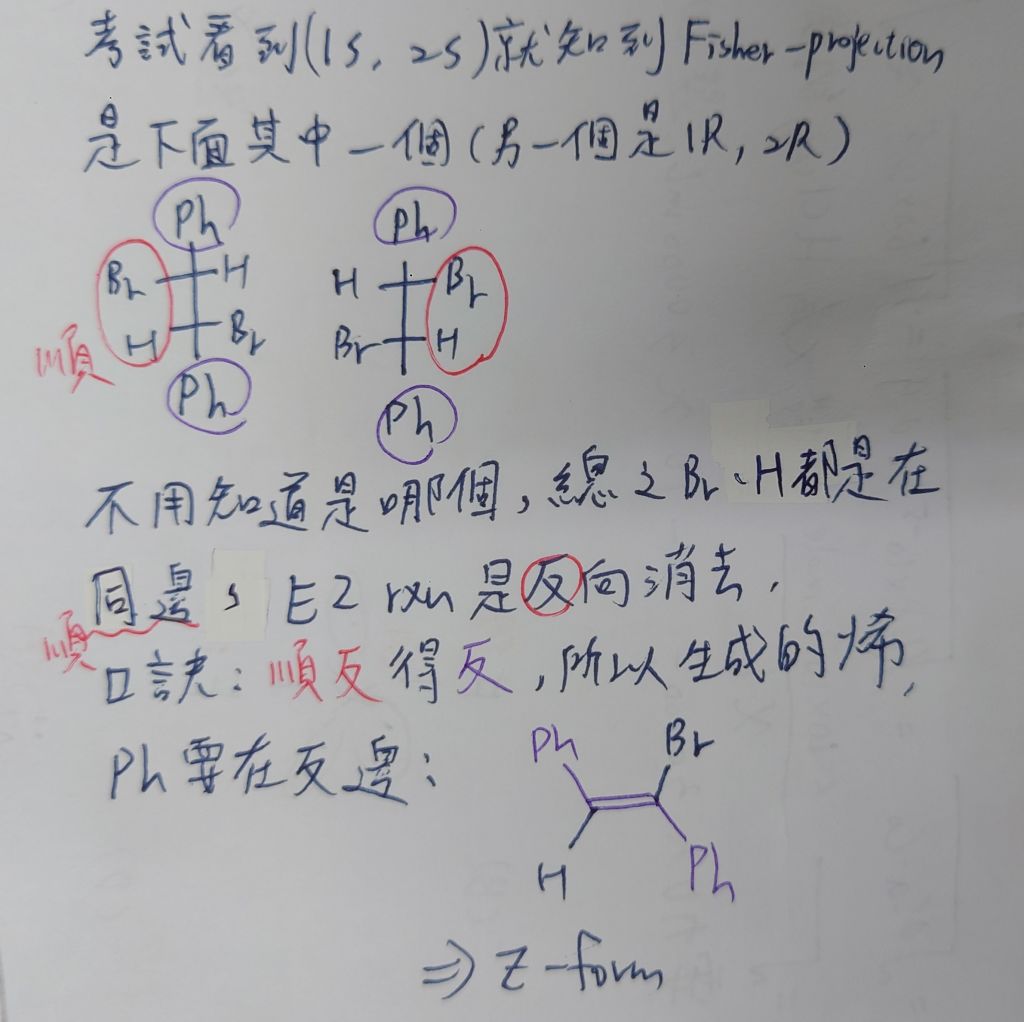 考試看到(1S, 2S)就知到Fisher-projection
是下面其中一個(另一個是1R, 2R)
Ph Ph
Br H H Br
順 H Br Br H
Ph Ph
不用知道是哪個,總之Br、H都是在
同邊, E2 rxn是反向消去,
順 口訣:順反得反,所以生成的烯,
Ph要在反邊: Ph Br
H Ph
⇒ Z-form